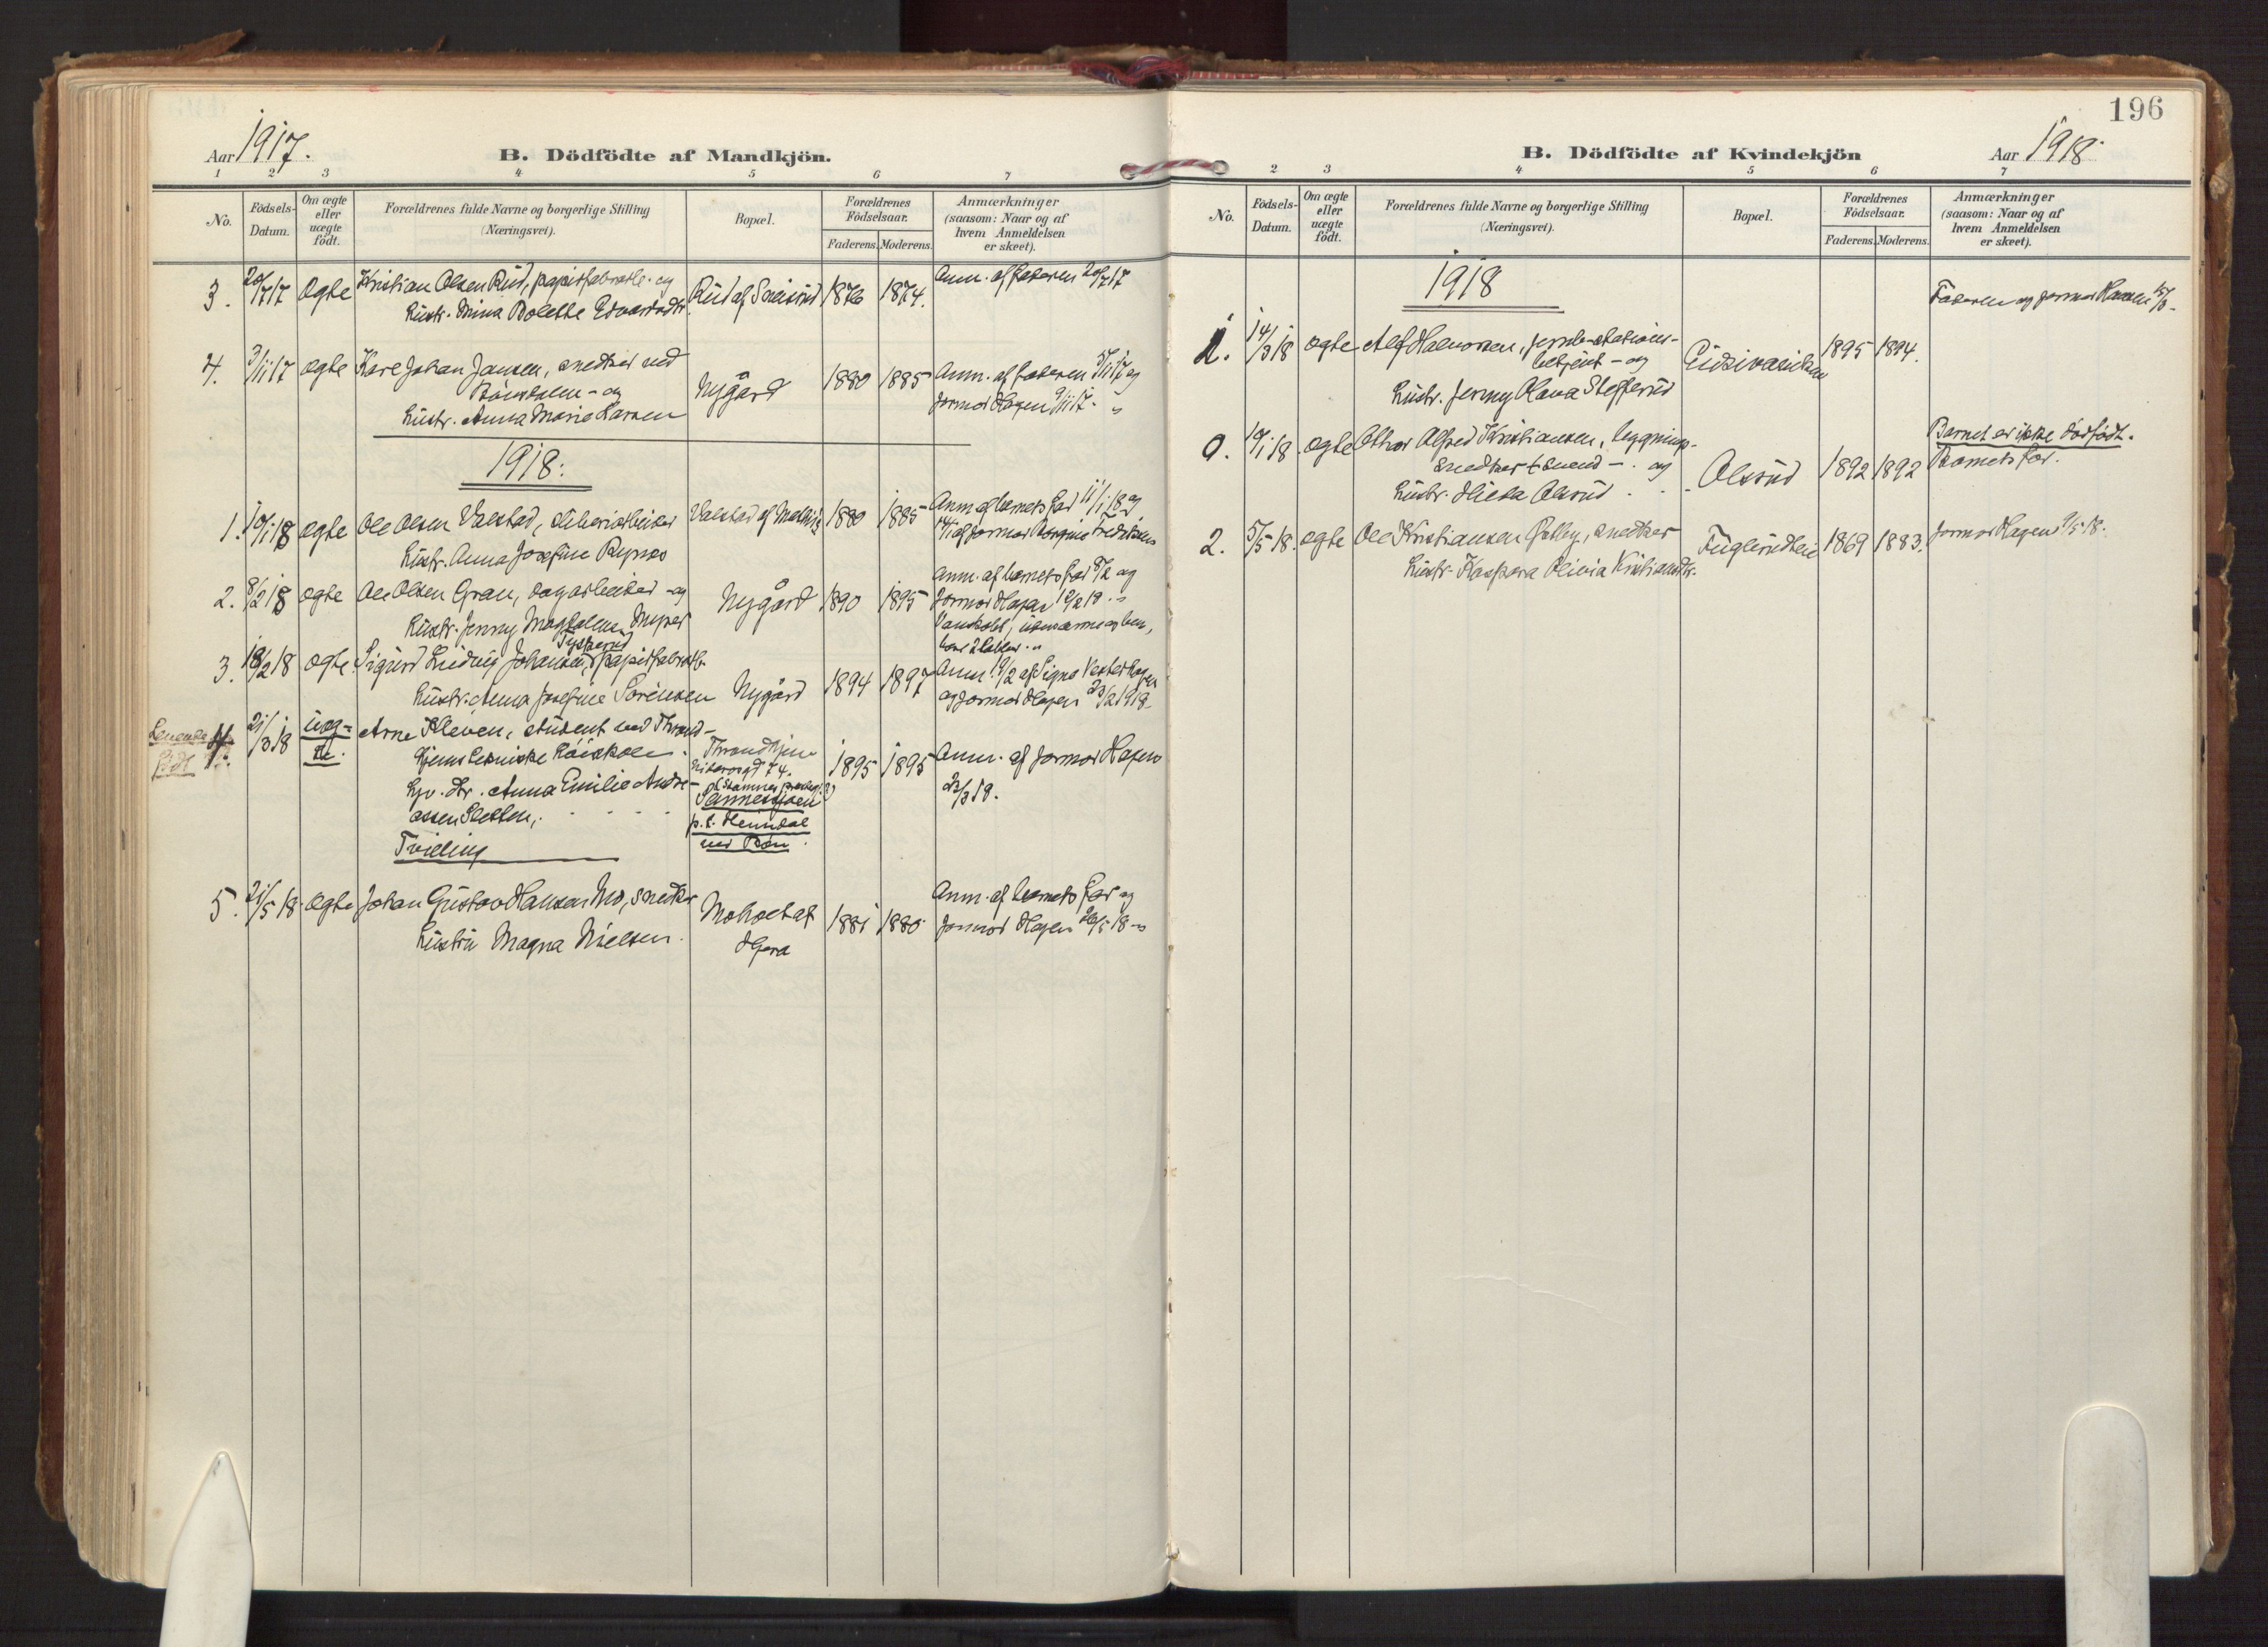 Aar 1917.
B. Dödfödte af Mandkjön.
1 2 3 4 5 6 7
No.
Födsels-
Datum.
Om ægte
eller
uægte
födt.
Forældrenes fulde Navne og borgerlige Stilling
(Næringsvei).
Bopæl.
Forældrenes
Födselsaar.
Faderens. Moderens.
Anmærkninger
(saasom: Naar og af
hvem Anmeldelsen
er skeet).
3. 20/7 17 ægte Kristian Olsen Rud, papirfabrarb. og
hustr. Mina Bolette Edvardsdtr. Rud af 1876 1874.
Anm. af faderen 20/7 17
4. 3/11 17 ægte Karl Johan Jansen, snedker ved
og
hustr. Anna Marie Larsen
Nygård 1880 1885
Anm. af faderen 5/11 17 og
Jormor Hagen 9/11 17.
1918.
1. 10/1 18 ægte Ole Olsen Valstad, sliberiarbeider
hustr. Anna Josefine Rynes
Valstad af 1880 1885
Anm. af barnets far 11/1 18 og
14/1 af Jormor Fredriksen
2. 8/2 18 ægte Ole Olsen Gran, dagarbeider og
hustr. Jenny Magdalena Myrer
Nygård 1890 1895
Anm. af barnets far 8/2 og
Jormor Hagen 10/2 18.
Vanskabt, uden arme og ben,
3. 18/2 18 ægte. Sigurd Ludvig Johansen, papirfabrarb.
hustr. Anna Josefine Sørensen Nygård 1894 1897
Anm. 19/2 af Signe Vesterhagen
og Jormor Hagen 23/2 1918.
Levende
født
4. 21/3 18 uæg-
te.
Arne Kleven, student ved Thrond-
hjems tekniske høiskole.
Throndhjem
74.
1895 1895
Anm. af Jormor Hagen
23/3 18.
Anna Emilie Andre-
assen Sletten,
p. t. Henndal
ved Bøn.
Tvilling
5. 21/5 18. ægte Johan Gustav Hansen Mo, snedker
hustru Magna Nielsen.
Moholt af 1881 1880
Anm. af barnets far og
Jormor Hagen 26/5 18
196
B. Dödfödte af Kvindekjön
Aar 1918.
2 3 4 5 6 7
No.
Födsels-
Datum.
Om ægte
eller
uægte
födt.
Forældrenes fulde Navne og borgerlige Stilling
(Næringsvei).
Bopæl.
Forældrenes
Födselsaar.
Faderens. Moderens.
Anmærkninger
(saasom: Naar og af
hvem Anmeldelsen
er skeet).
1918
Faderen og Jormor Hansen 15/3
1. 14/3 18 ægte Alf Halvorsen, jernb.-stations-
betjent - og
hustr. Jenny Olava Stefferud
1895 1894.
0. 10/1 18 ægte Othar Alfred Kristiansen, bygnings-
snedkersvend - og
hustr. Hilda Olsrud
Olsrud 1892 1892
Barnet er ikke dødfødt.
Barnets far.
2. 5/5 18. ægte Ole Kristiansen Østby, snedker
hustr. Kaspara Olivia Kristiansdtr.
1869 1883.
Jormor Hagen 9/5 18.